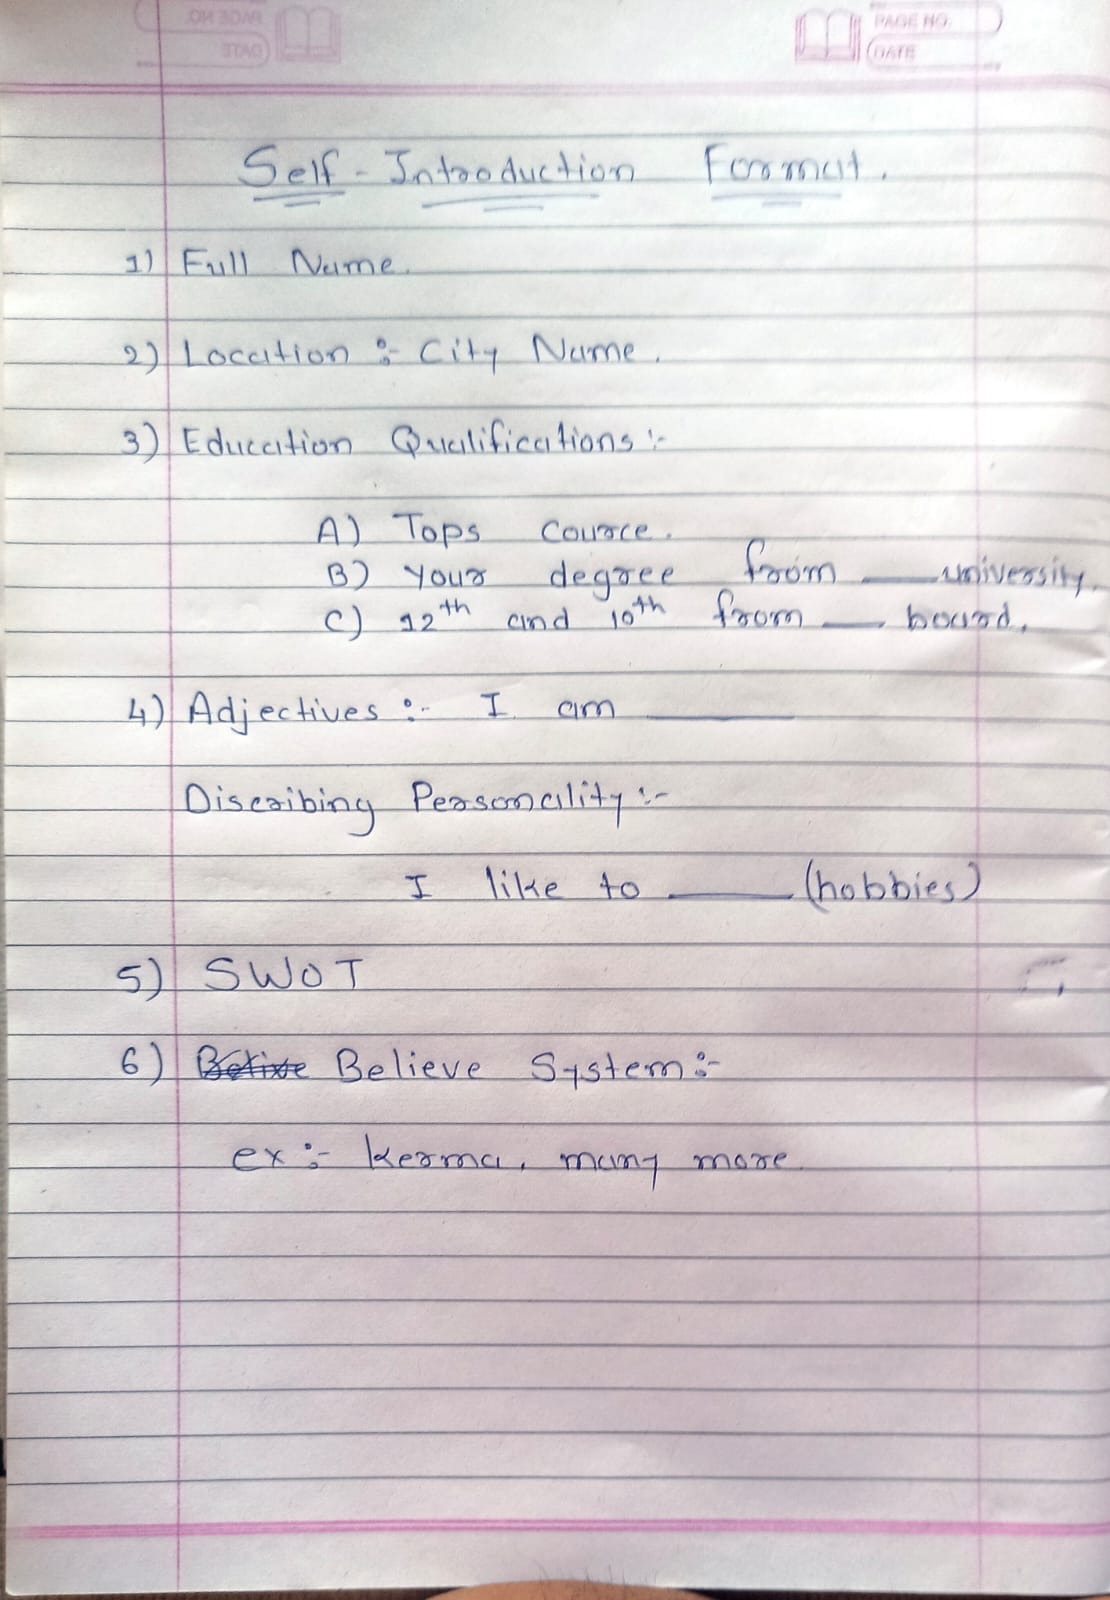 PAGE NO.
DATE
Self-Introduction Format.
1) Full Name.
2) Location :- City Name.
3) Education Qualifications :-
A) Tops Cource.
B) Your degree from ___ university.
C) 12th and 10th from ___ board.
4) Adjectives :- I am ___
Discribing Personality :-
I like to ___ (hobbies)
5) SWOT
6) Believe System :-
ex :- kerma, many more.